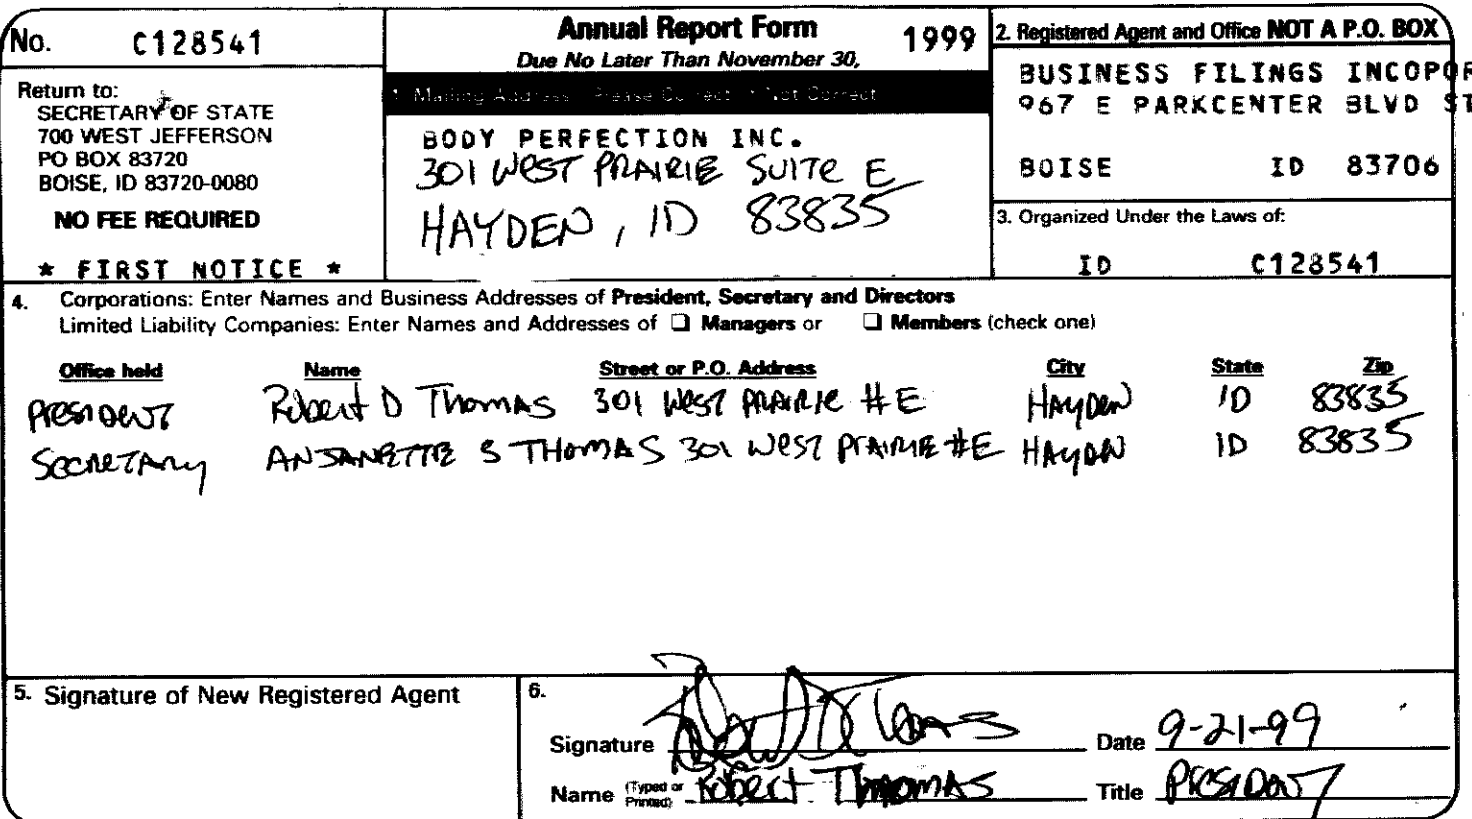 No. C128541
Return to:
SECRETARY OF STATE
700 WEST JEFFERSON
PO BOX 83720
BOISE, ID 83720-0080
NO FEE REQUIRED
* FIRST NOTICE *
Annual Report Form 1999
Due No Later Than November 30,
1. Mailing Address - Please Correct If Not Correct
BODY PERFECTION INC.
301 WEST PRAIRIE SUITE E
HAYDEN, ID 83835
2. Registered Agent and Office NOT A P.O. BOX
BUSINESS FILINGS INCOPOR
967 E PARKCENTER BLVD ST
BOISE ID 83706
3. Organized Under the Laws of:
ID C128541
4. Corporations: Enter Names and Business Addresses of President, Secretary and Directors
Limited Liability Companies: Enter Names and Addresses of ❑ Managers or ❑ Members (check one)
Office held Name Street or P.O. Address City State Zip
PRESIDENT Robert D Thomas 301 WEST PRAIRIE #E HAYDEN ID 83835
SECRETARY ANJANETTE S THOMAS 301 WEST PRAIRIE #E HAYDEN ID 83835
5. Signature of New Registered Agent
6.
Signature Robert D Thomas Date 9-21-99
Name (Typed or Printed) Robert Thomas Title PRESIDENT